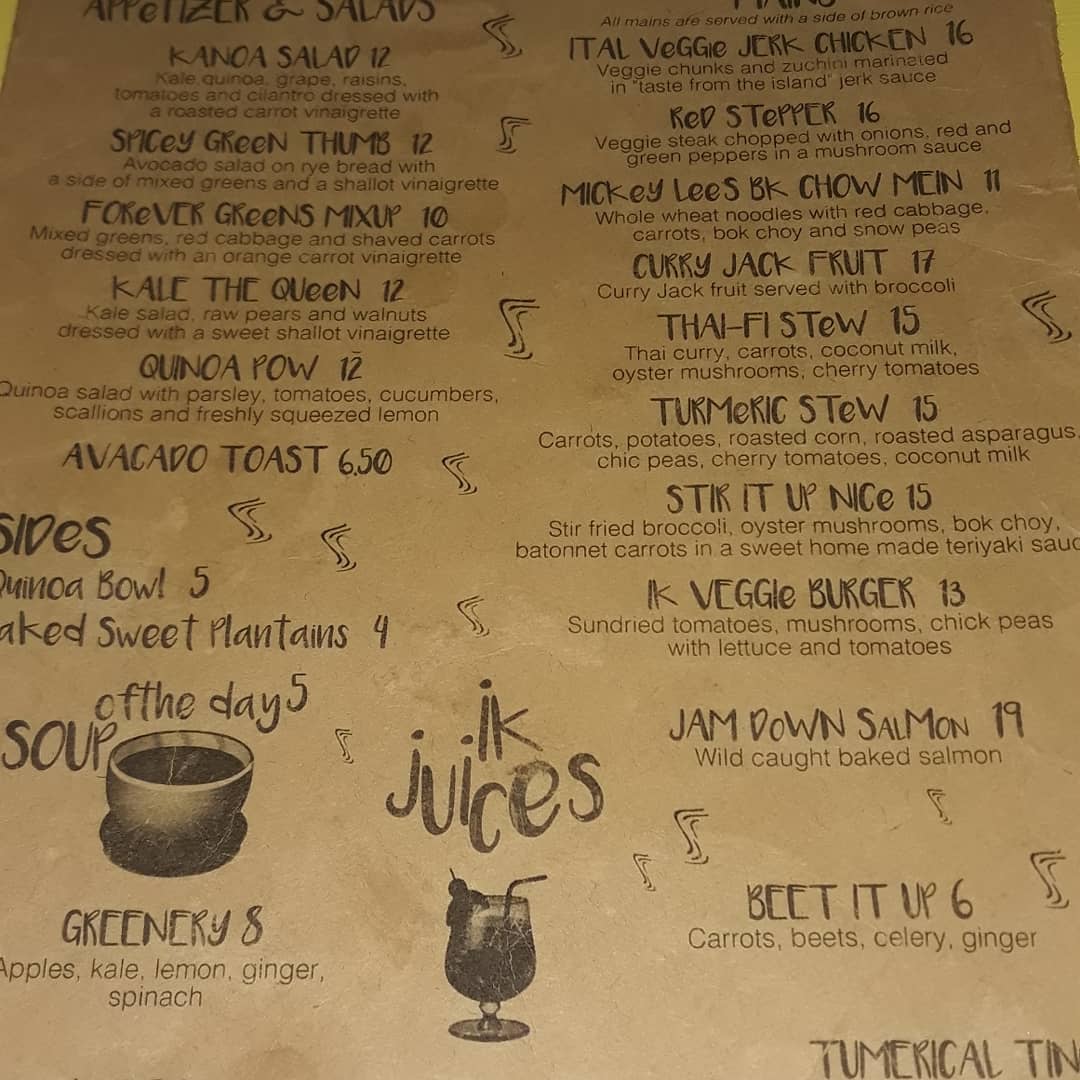 APPETIZER & SALADS
KANOA SALAD 12
Kale, quinoa, grape, raisins,
tomatoes and cilantro dressed with
a roasted carrot vinaigrette
SPICEY GREEN THUMB 12
Avocado salad on rye bread with
a side of mixed greens and a shallot vinaigrette
FOREVER GREENS MIXUP 10
Mixed greens, red cabbage and shaved carrots
dressed with an orange carrot vinaigrette
KALE THE QUEEN 12
Kale salad, raw pears and walnuts
dressed with a sweet shallot vinaigrette
QUINOA POW 12
Quinoa salad with parsley, tomatoes, cucumbers,
scallions and freshly squeezed lemon
AVACADO TOAST 6.50
SIDES
Quinoa Bowl 5
aked Sweet Plantains 4
SOUP of the day 5
MAINS
All mains are served with a side of brown rice
ITAL VEGGIE JERK CHICKEN 16
Veggie chunks and zuchini marinated
in "taste from the island" jerk sauce
RED STEPPER 16
Veggie steak chopped with onions, red and
green peppers in a mushroom sauce
MICKEY LEES BK CHOW MEIN 11
Whole wheat noodles with red cabbage,
carrots, bok choy and snow peas
CURRY JACK FRUIT 17
Curry Jack fruit served with broccoli
THAI-FI STEW 15
Thai curry, carrots, coconut milk,
oyster mushrooms, cherry tomatoes
TURMERIC STEW 15
Carrots, potatoes, roasted corn, roasted asparagus,
chic peas, cherry tomatoes, coconut milk
STIR IT UP NICE 15
Stir fried broccoli, oyster mushrooms, bok choy,
batonnet carrots in a sweet home made teriyaki sauc
IK VEGGIE BURGER 13
Sundried tomatoes, mushrooms, chick peas
with lettuce and tomatoes
JAM DOWN SALMON 19
Wild caught baked salmon
ik
juices
GREENERY 8
Apples, kale, lemon, ginger,
spinach
BEET IT UP 6
Carrots, beets, celery, ginger
TUMERICAL TIN